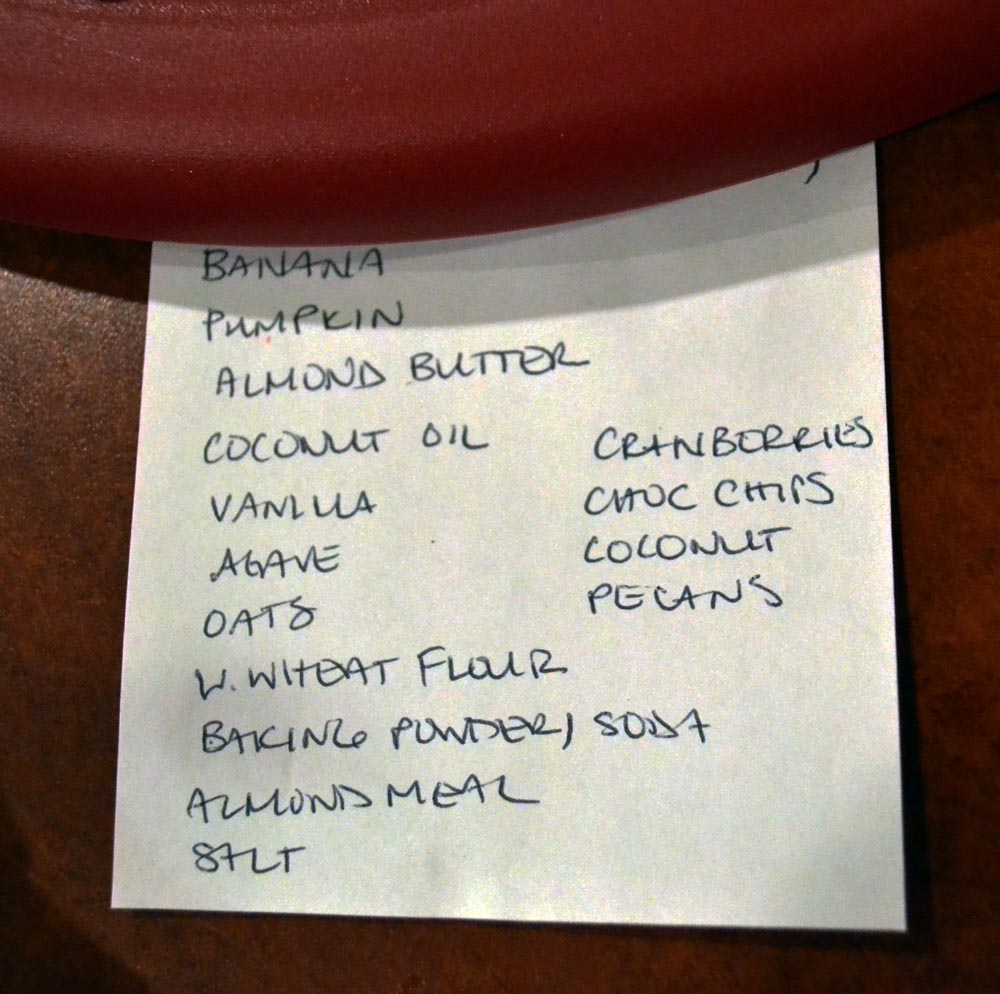 BANANA
PUMPKIN
ALMOND BUTTER
COCONUT OIL
VANILLA
AGAVE
OATS
W. WHEAT FLOUR
BAKING POWDER/SODA
ALMOND MEAL
SALT
CRANBERRIES
CHOC CHIPS
COCONUT
PECANS